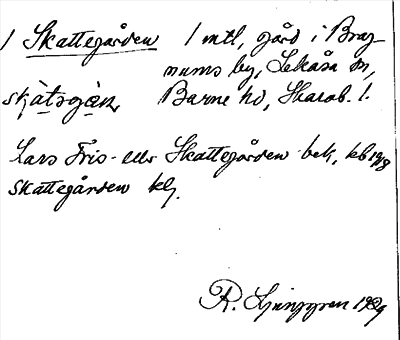 1 Skattegården 1 mtl, gård i Brag-
nums by, Lekåsa sn,
skàtsgàn, Barne hd, Skarab. l.
Lars Fris- eller Skattegården bek, kb 1918
Skattegården kg.
R. Ljunggren 1929